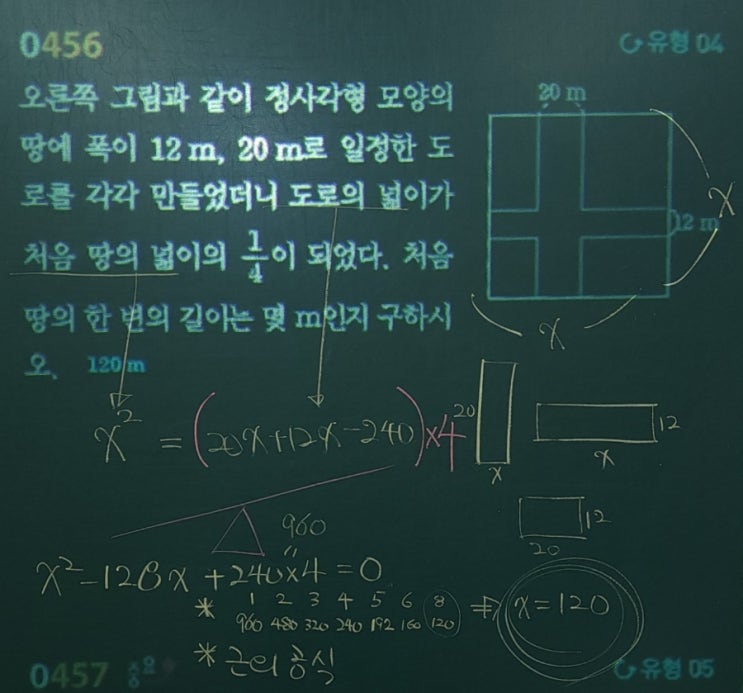 0456
유형 04
오른쪽 그림과 같이 정사각형 모양의
땅에 폭이 12 m, 20 m로 일정한 도
로를 각각 만들었더니 도로의 넓이가
처음 땅의 넓이의 1/4이 되었다. 처음
땅의 한 변의 길이는 몇 m인지 구하시
오. 120 m
20 m
12 m
x
x
x² = (20x+12x-240)×4
20
x
12
x
12
20
960
"
x²-128x+240×4=0
* 1 2 3 4 5 6 8
960 480 320 240 192 160 120
⇒ x=120
* 근의 공식
0457 중요
유형 05